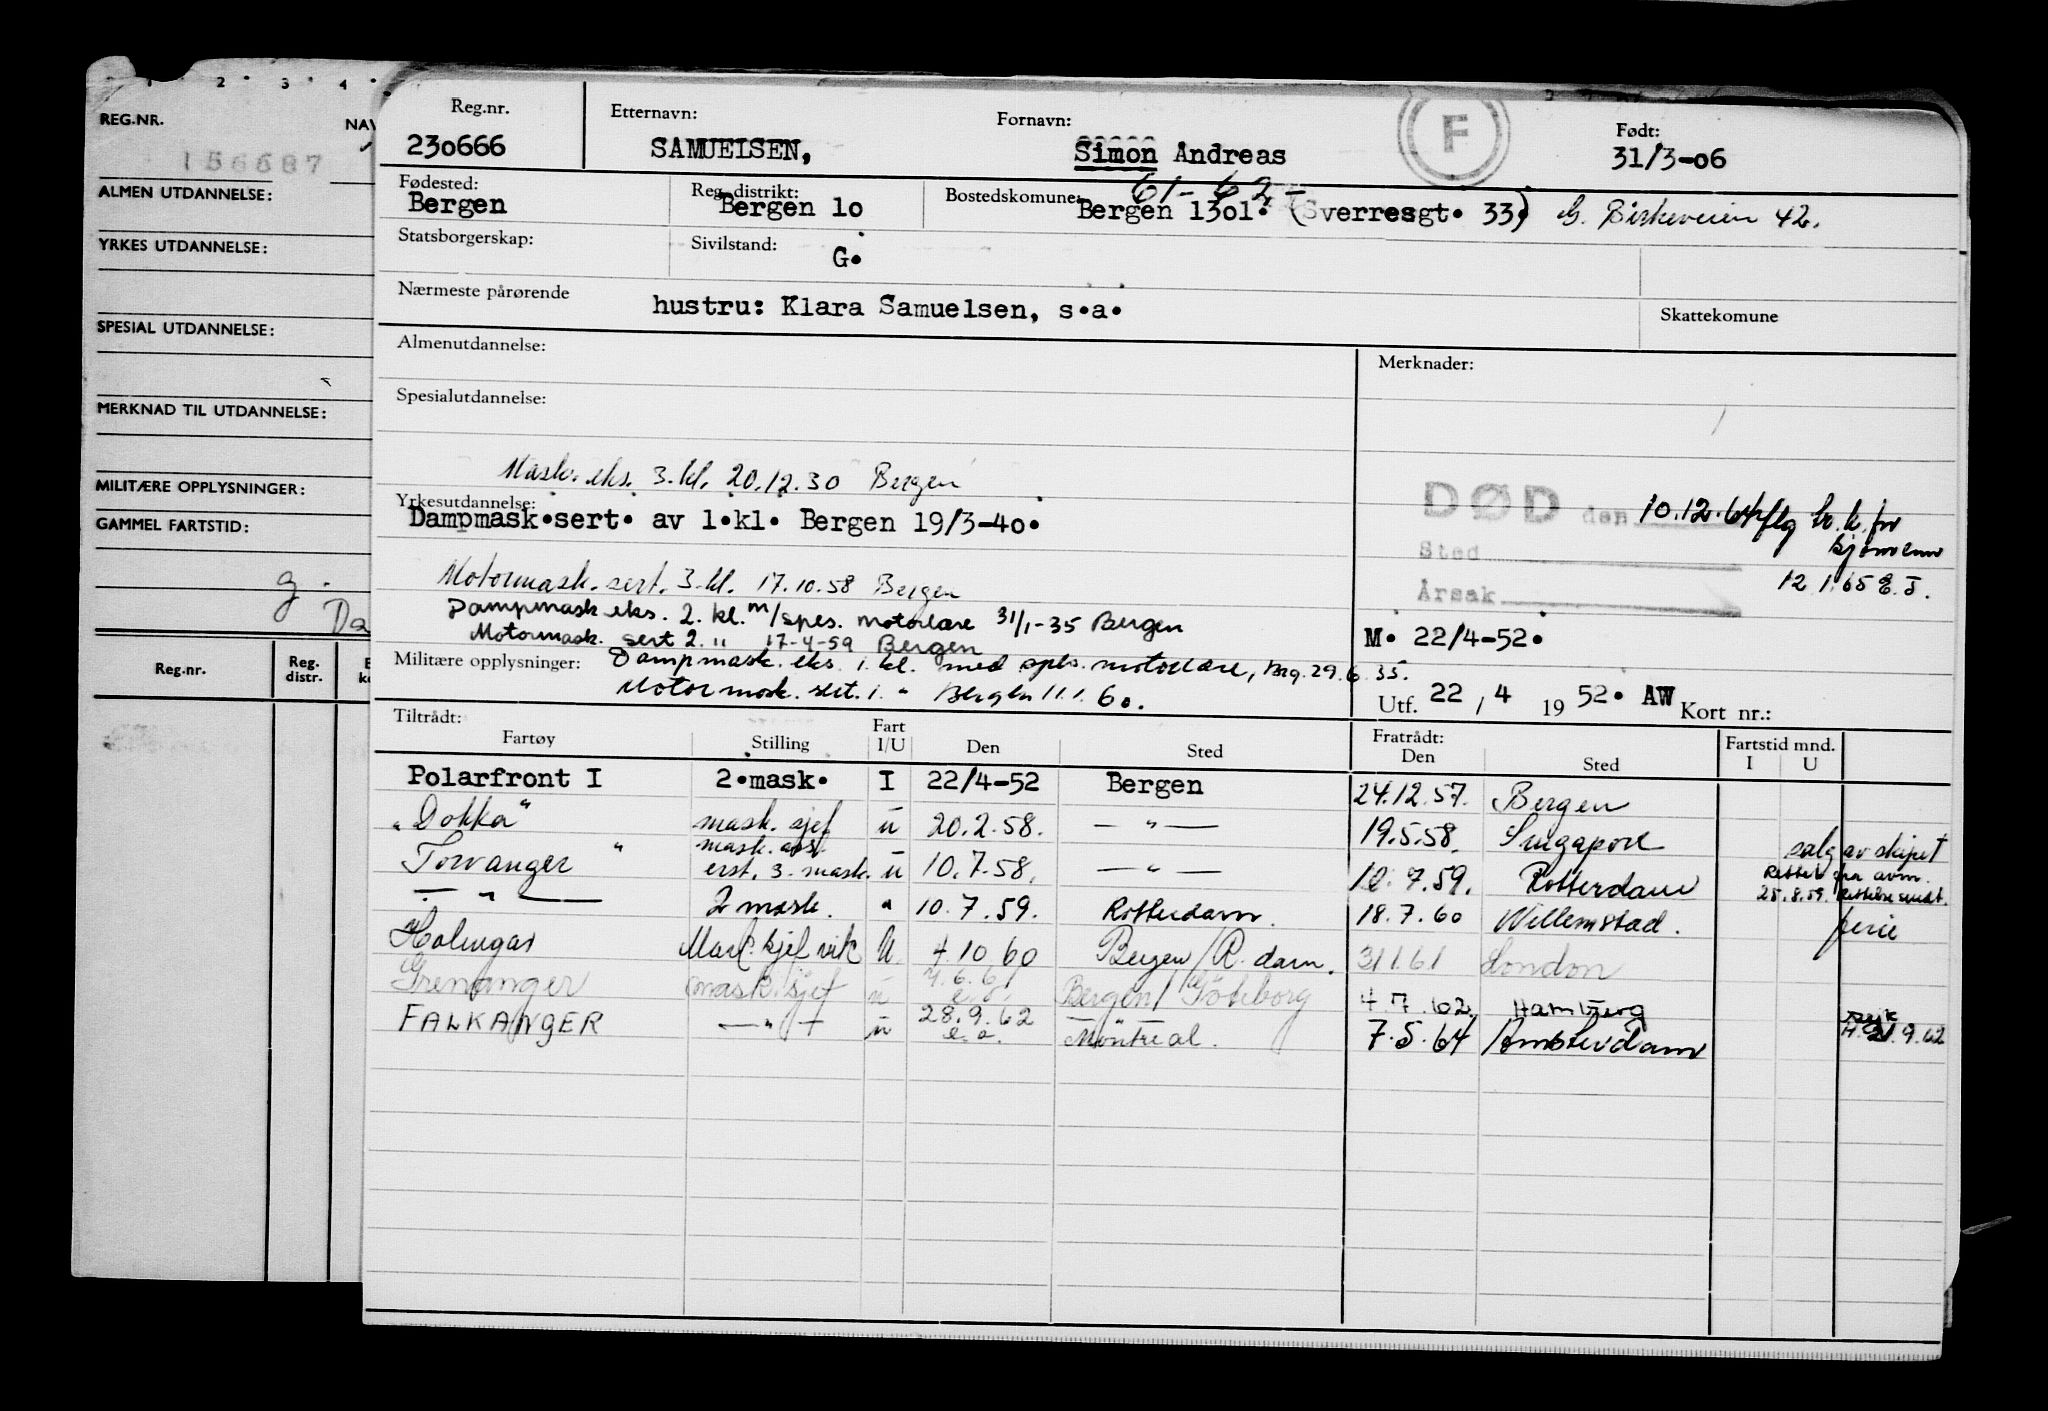 1 • 2 • 3 • 4 •
REG.NR.
NAV
156687
ALMEN UTDANNELSE:
YRKES UTDANNELSE:
SPESIAL UTDANNELSE:
MERKNAD TIL UTDANNELSE:
MILITÆRE OPPLYSNINGER:
GAMMEL FARTSTID:
g.
Da
Reg.nr. Reg. distr.
Reg.nr. Etternavn: Fornavn: F Født:
230666 SAMUELSEN, Simon Andreas 31/3-06
Fødested: Reg. distrikt: Bostedskomune: 61-62
Bergen Bergen 10 Bergen 1301. (Sverresgt. 33) G. Birkeveien 42.
Statsborgerskap: Sivilstand: G.
Nærmeste pårørende hustru: Klara Samuelsen, s.a. Skattekomune
Almenutdannelse: Merknader:
Spesialutdannelse:
Mask. eks. 3. kl. 20.12.30 Bergen
Yrkesutdannelse:
Dampmask.sert. av 1.kl. Bergen 19/3-40.
DØD den 10.12.64 flg br. k. for
Sted
12.1.65 E.J.
Årsak
Motormask. sert. 3. kl. 17.10.58 Bergen
Dampmask eks. 2. kl. m/spes. motorlære 31/1-35 Bergen
Motormask. sert 2. " 17-4-59 Bergen
M. 22/4-52.
Militære opplysninger: Dampmask. eks. 1. kl. med spes. motorlære, Brg. 29.6.35.
Motormask. sert. 1. " Bergen 11.1.60.
Utf. 22 / 4 19 52. AW Kort nr.:
Tiltrådt: Fart Fratrådt: Fartstid mnd.
Fartøy Stilling I/U Den Sted Den Sted I U
Polarfront I 2.mask. I 22/4-52 Bergen 24.12.57. Bergen
"Dokka" mask. sjef u 20.2.58. — " — 19.5.58. Singapore salg av skipet
Torvanger " mask. ass. erst. 3. mask. u 10.7.58. — " — 10.7.59. Rotterdam Rettet fra avm. 25.8.59.
— " — 2 mask. " 10.7.59. Rotterdam. 18.7.60 Willemstad. ferie
Hølingar Mask. sjef vik U 4 10 60 Bergen/R.dam. 31.1.61 London
Grenanger mask. sjef u 4.6.61 e.o. Bergen/Göteborg 4.7.62. Hamburg
syk
FALKANGER — " — u 28.9.62 e.o. Montreal. 7.5.64 Amsterdam 21.9.62